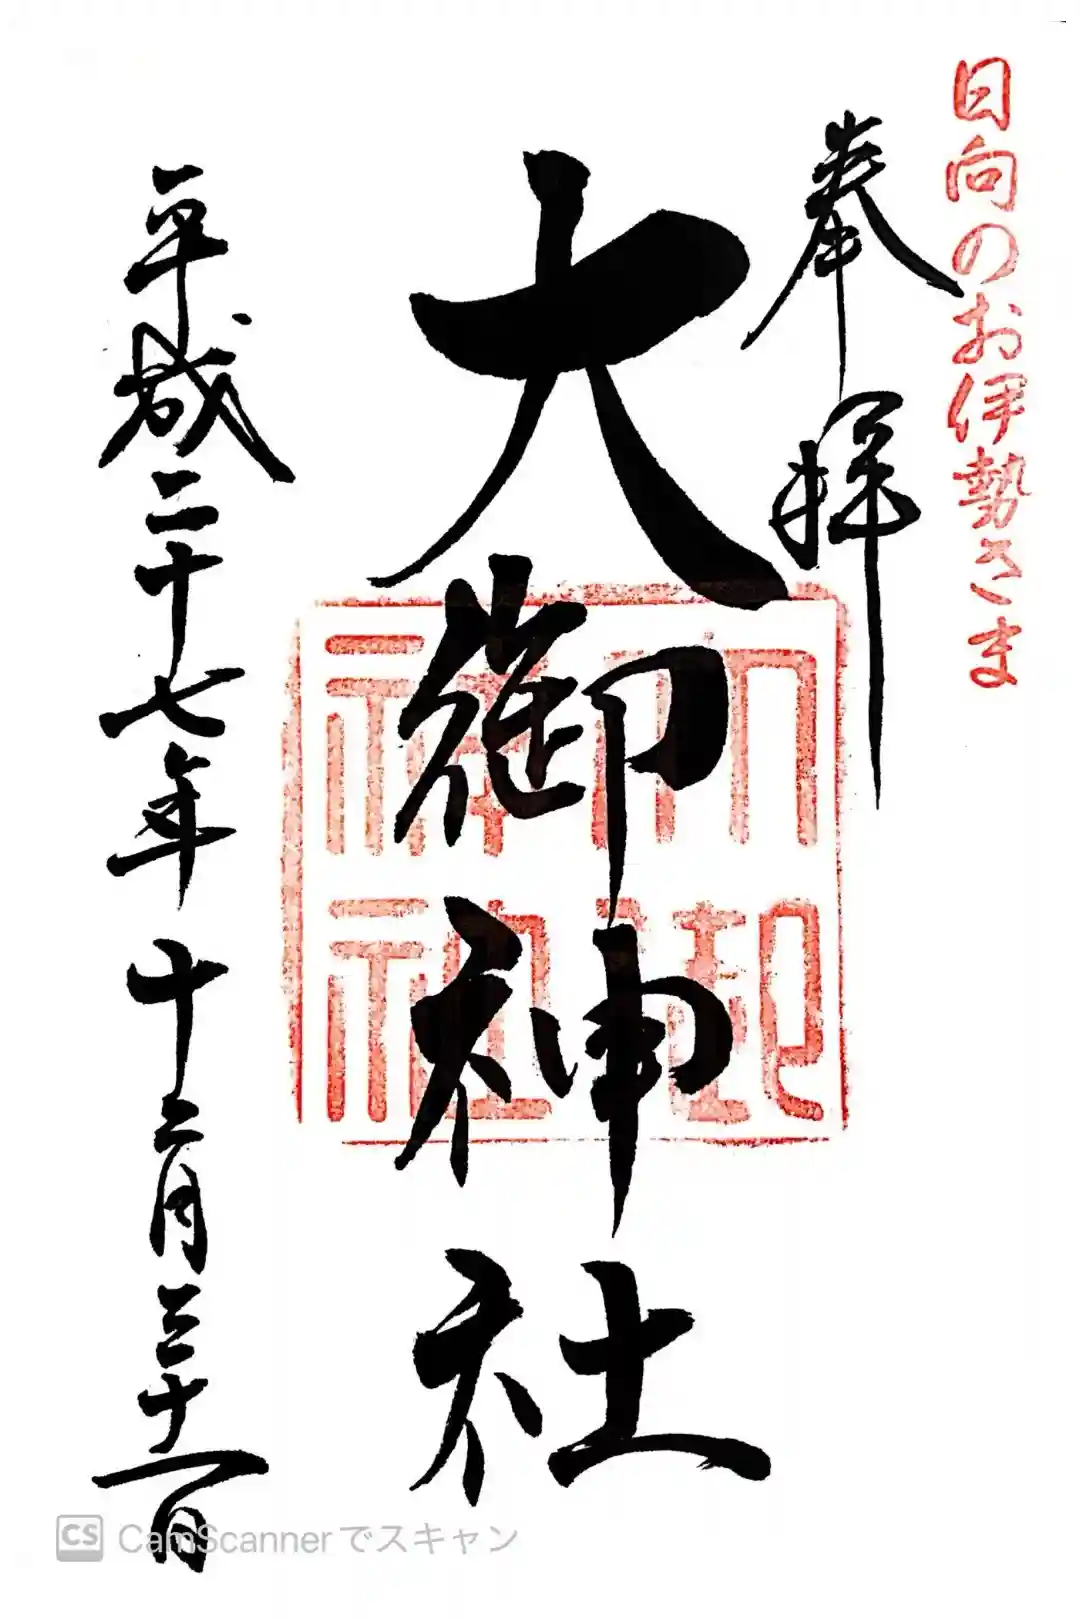 日向のお伊勢さま
奉拝
大御神社
大御神社
平成二十七年十二月三十一日
CS CamScannerでスキャン